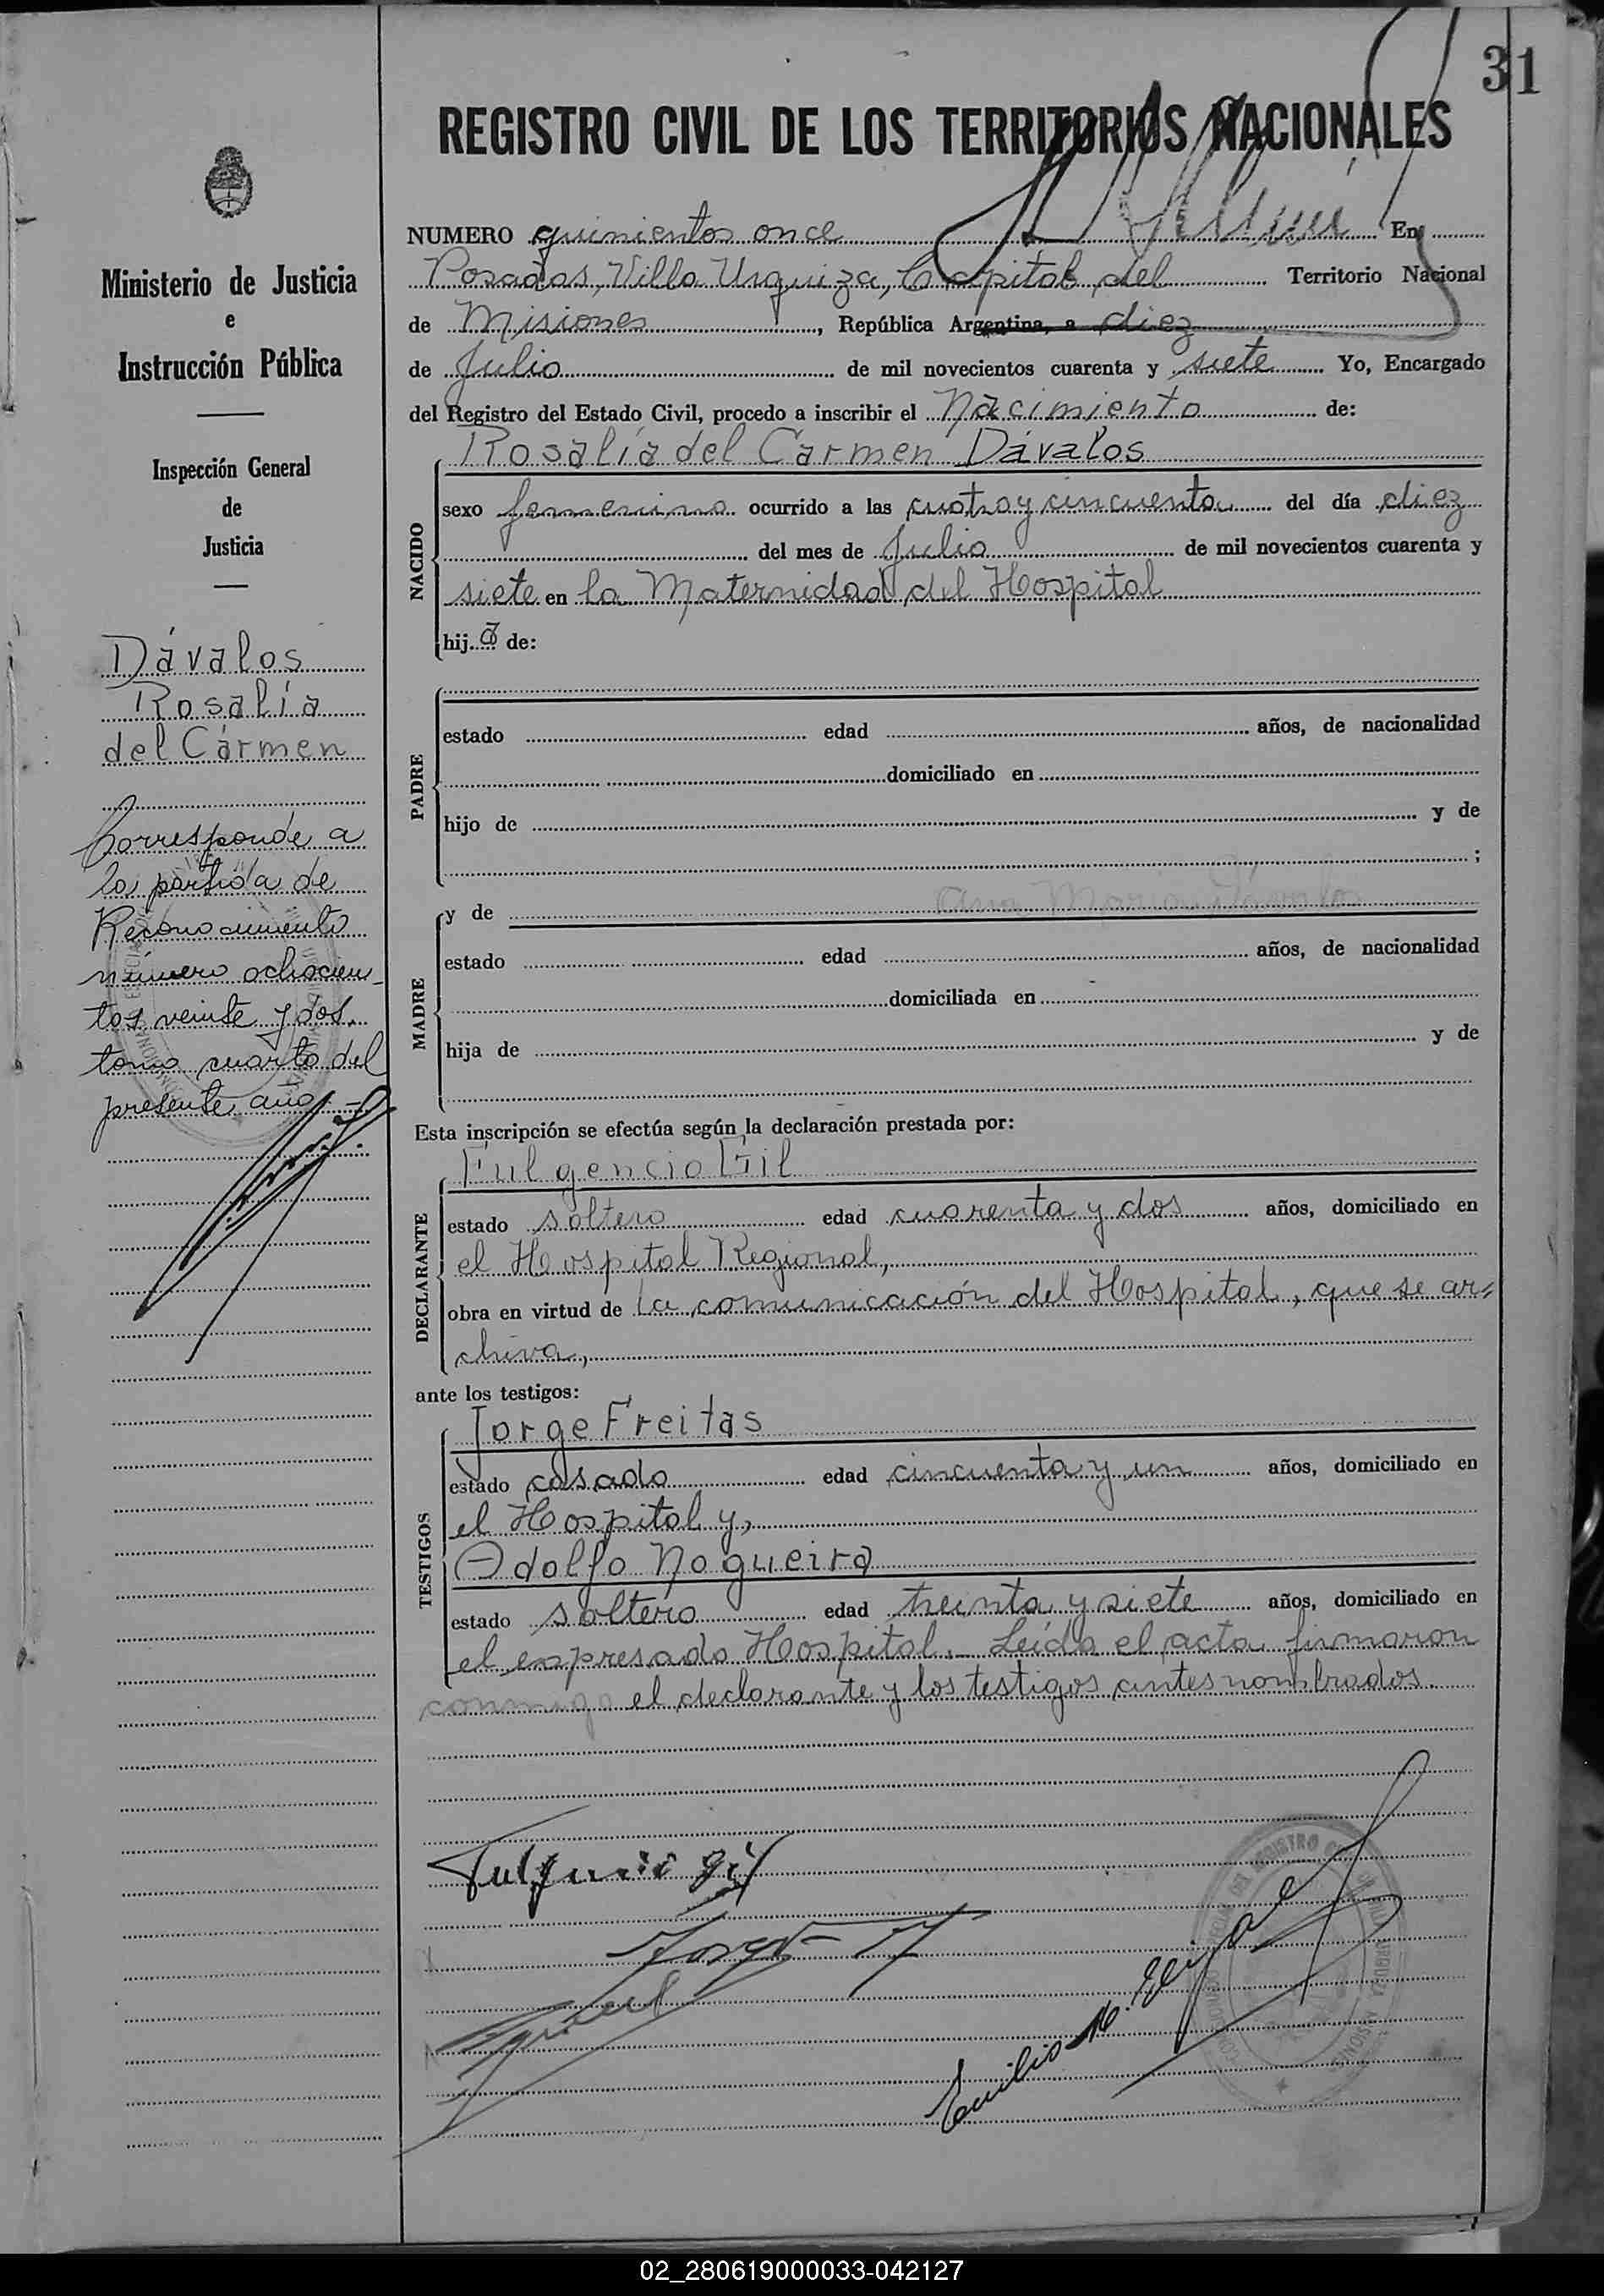 31
REGISTRO CIVIL DE LOS TERRITORIOS NACIONALES
NUMERO quinientos once En
Posadas, Villa Urquiza, Capital del Territorio Nacional
de Misiones, República Argentina, a diez
de Julio de mil novecientos cuarenta y siete Yo, Encargado
del Registro del Estado Civil, procedo a inscribir el Nacimiento de:
Rosalía del Cármen Dávalos
NACIDO
sexo femenino ocurrido a las cuatro y cincuenta del día diez
del mes de Julio de mil novecientos cuarenta y
siete en la Maternidad del Hospital
hij a de:
PADRE
estado edad años, de nacionalidad
domiciliado en
hijo de y de
;
MADRE
Ana María Dávalos
y de
estado edad años, de nacionalidad
domiciliada en
hija de y de
Esta inscripción se efectúa según la declaración prestada por:
Fulgencio Gil
DECLARANTE
estado soltero edad cuarenta y dos años, domiciliado en
el Hospital Regional,
obra en virtud de la comunicación del Hospital, que se ar=
chiva,
ante los testigos:
Jorge Freitas
TESTIGOS
estado casado edad cincuenta y un años, domiciliado en
el Hospital y,
Adolfo Nogueira
estado soltero edad treinta y siete años, domiciliado en
el expresado Hospital.- Leída el acta firmaron
conmigo el declarante y los testigos antes nombrados.
Fulgencio Gil
Ministerio de Justicia
e
Instrucción Pública
Inspección General
de
Justicia
Dávalos
Rosalía
del Cármen
Corresponde a
la partida de
Reconocimiento
número ochocien-
tos veinte y dos,
tomo cuarto del
presente año.-
02_280619000033-042127